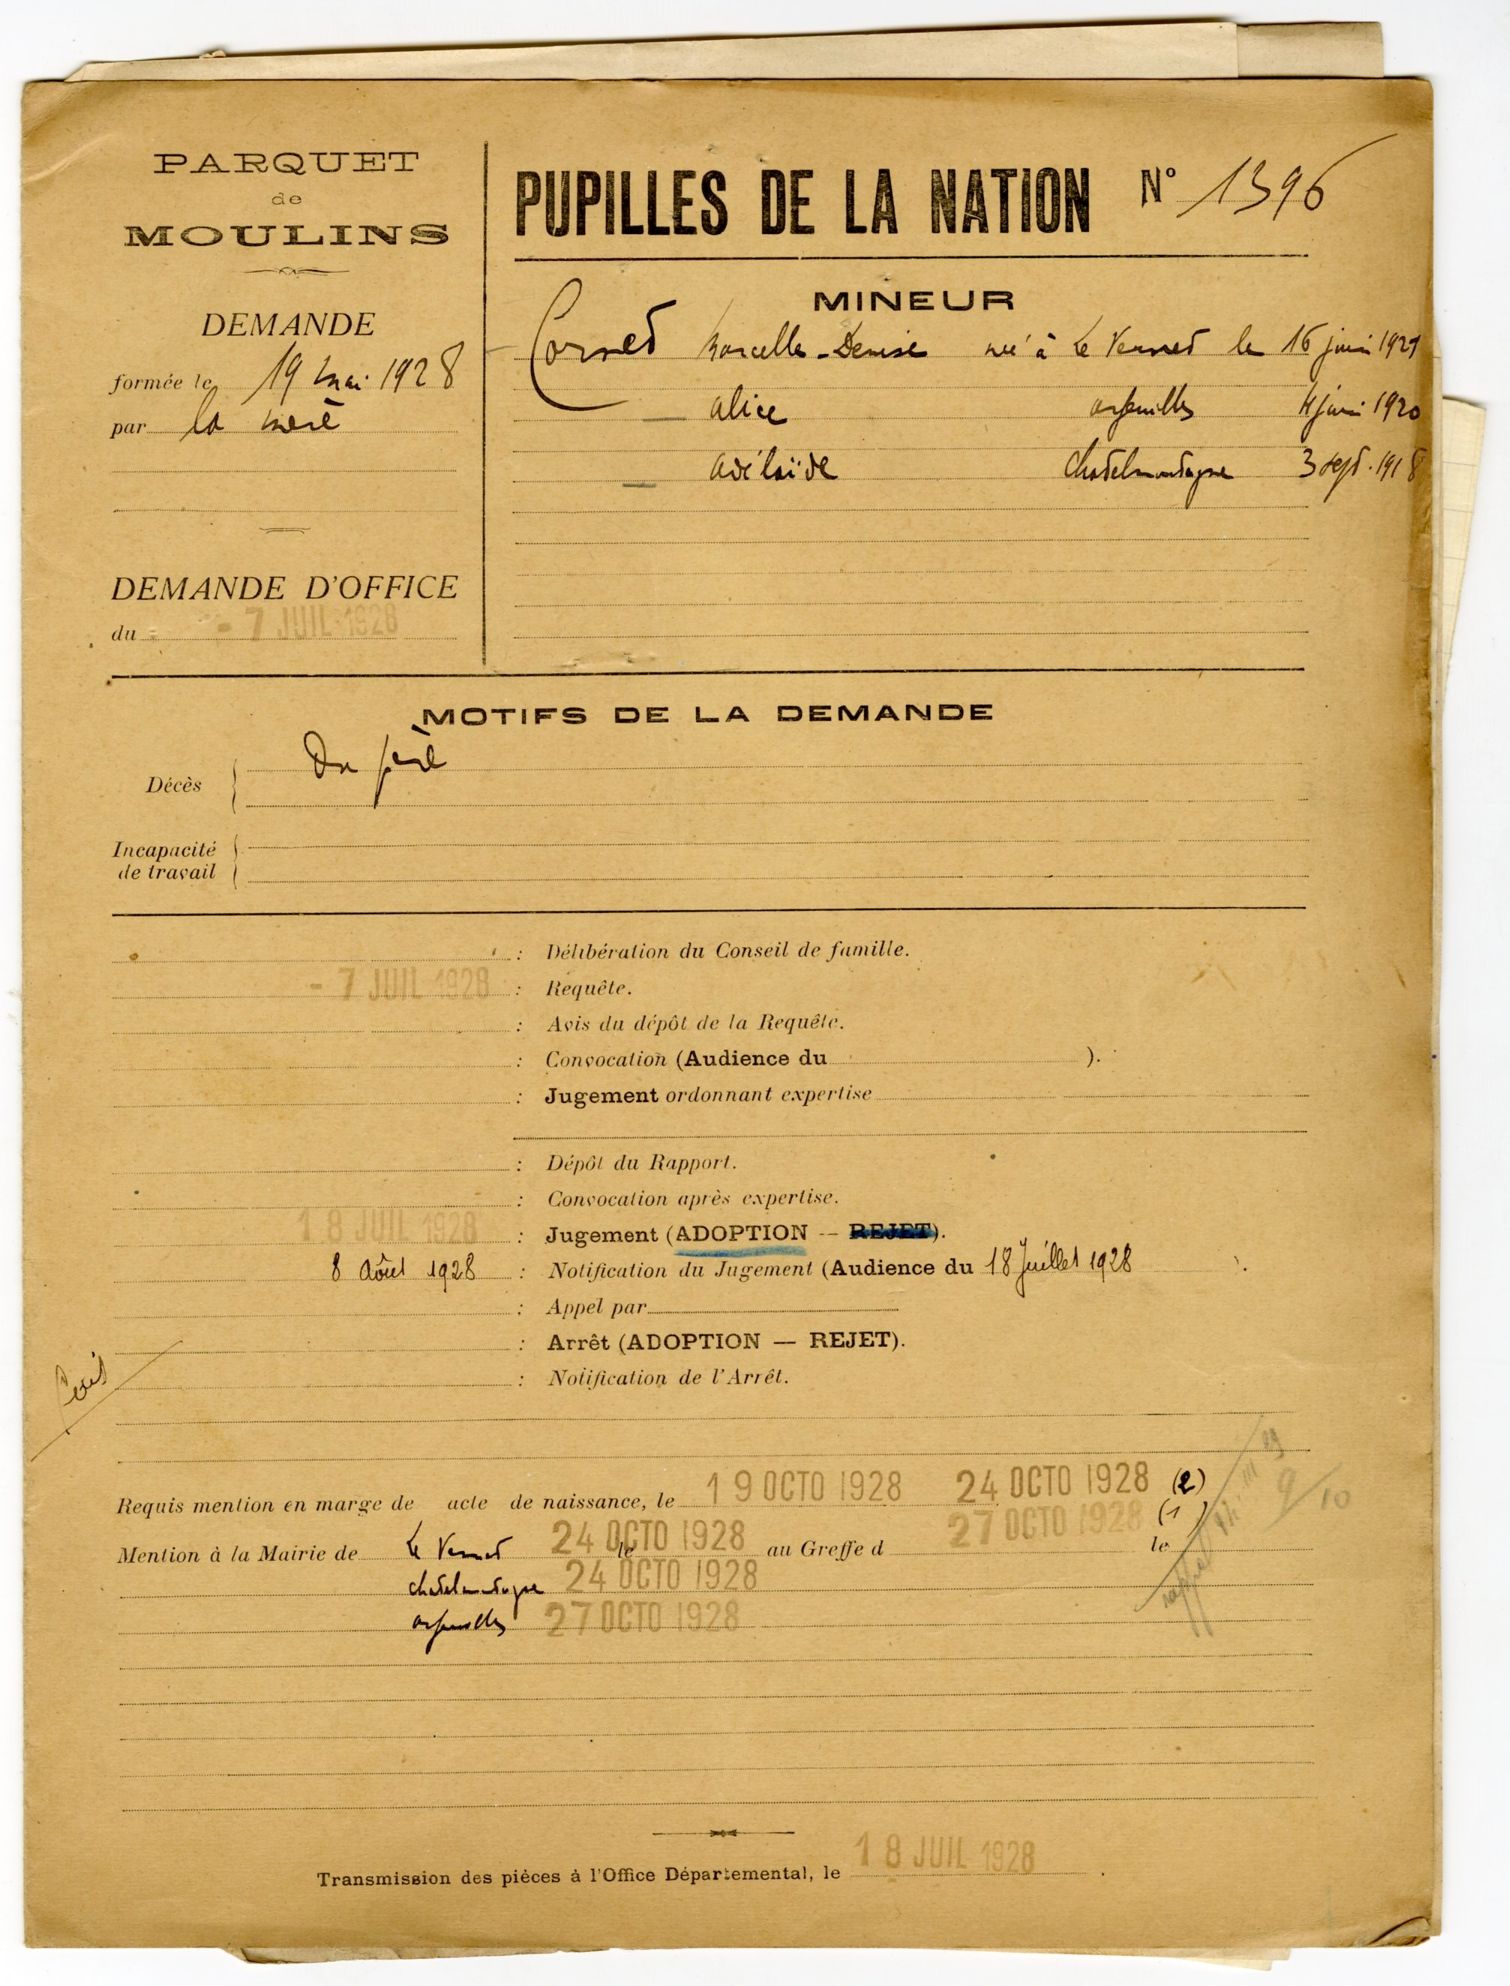 PARQUET
de
MOULINS
DEMANDE
formée le 19 mai 1928
par la mère
DEMANDE D'OFFICE
du - 7 JUIL 1928
PUPILLES DE LA NATION N° 1396
MINEUR
Cornet Marcelle-Denise né à Le Vernet le 16 juin 1921
— alice arfeuilles 4 juin 1920
— adélaïde Chatelmontagne 3 sept. 1918
MOTIFS DE LA DEMANDE
Décès Du père
Incapacité
de travail
: Délibération du Conseil de famille.
- 7 JUIL 1928 : Requête.
: Avis du dépôt de la Requête.
: Convocation (Audience du ).
: Jugement ordonnant expertise
: Dépôt du Rapport.
: Convocation après expertise.
18 JUIL 1928 : Jugement (ADOPTION — REJET).
8 Août 1928 : Notification du Jugement (Audience du 18 Juillet 1928
: Appel par
: Arrêt (ADOPTION — REJET).
: Notification de l'Arrêt.
Requis mention en marge de acte de naissance, le 19 OCTO 1928 24 OCTO 1928 (2)
27 OCTO 1928 (1)
Mention à la Mairie de Le Vernet le 24 OCTO 1928 au Greffe d le
chatelmontagne 24 OCTO 1928
arfeuilles 27 OCTO 1928
rappel
9/10
Transmission des pièces à l'Office Départemental, le 18 JUIL 1928